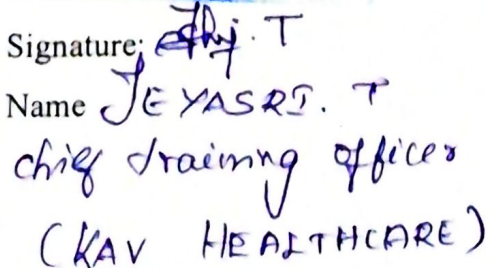 Signature: T
Name JEYASRI. T
chief training officer
(KAV HEALTHCARE)